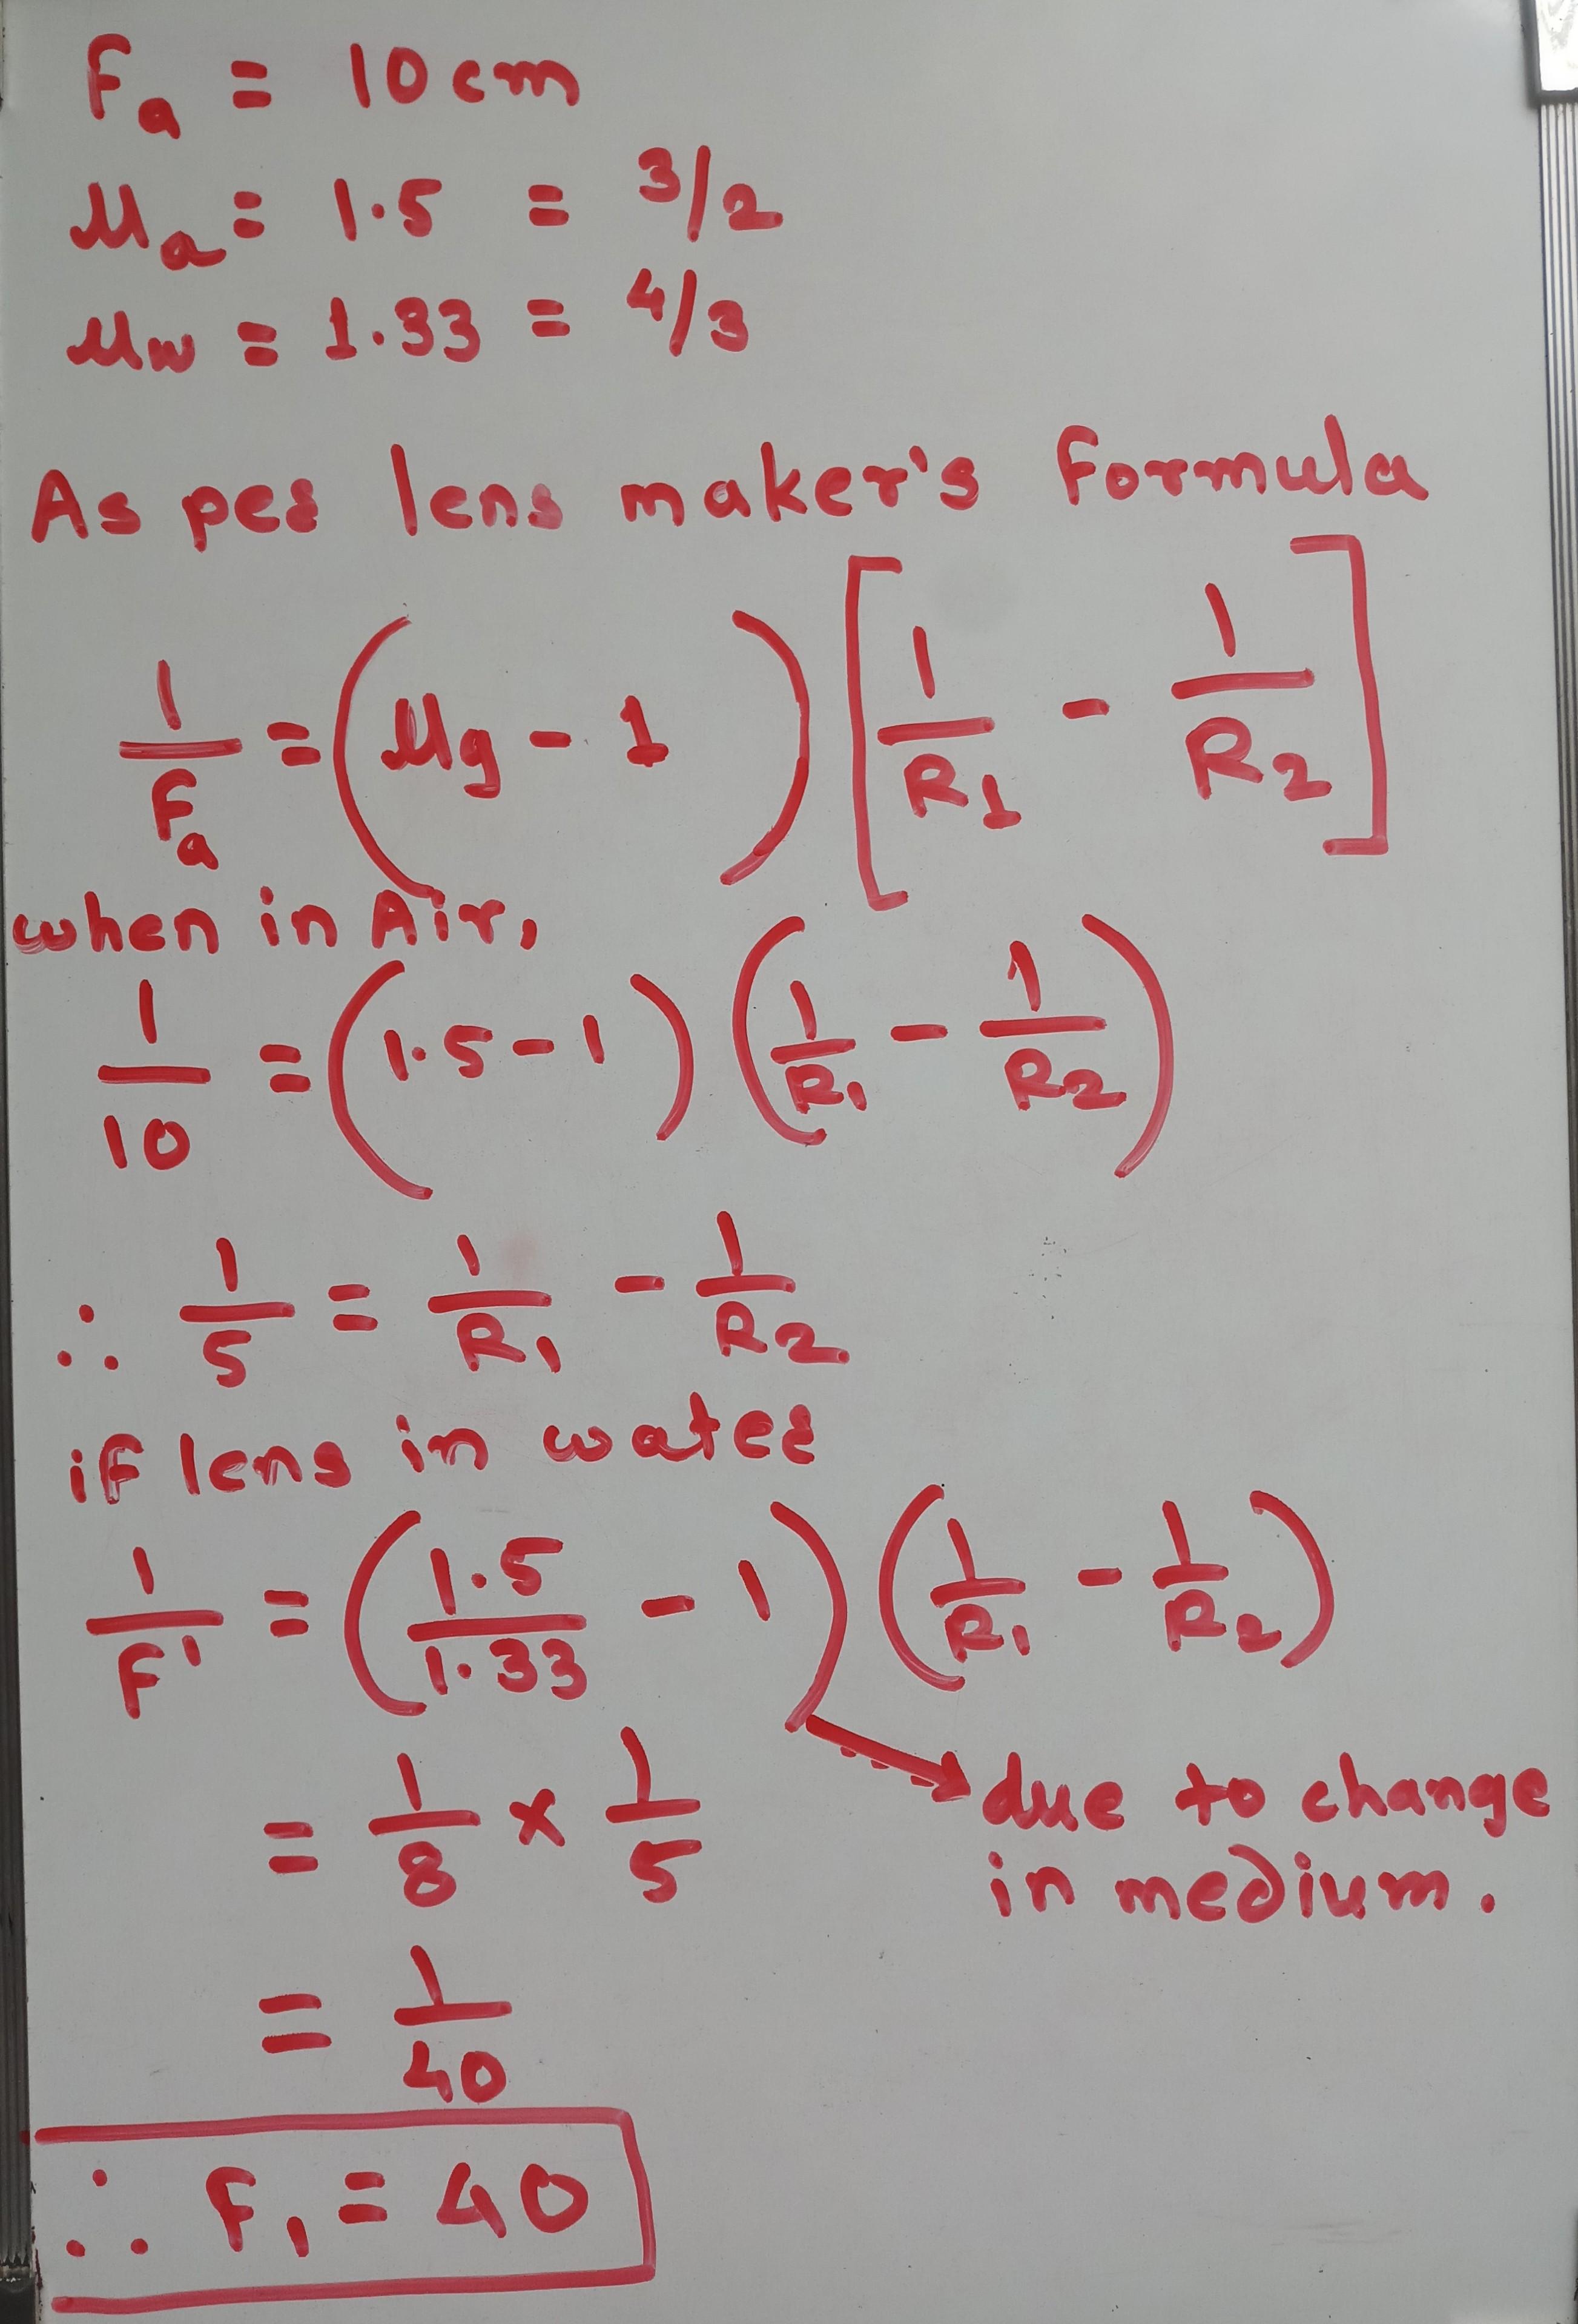 Fa = 10 cm
μa = 1.5 = 3/2
μw = 1.33 = 4/3
As per lens maker's formula
1/Fa = (μg - 1) [1/R1 - 1/R2]
when in Air,
1/10 = (1.5 - 1) (1/R1 - 1/R2)
∴ 1/5 = 1/R1 - 1/R2
if lens in water
1/F' = (1.5/1.33 - 1) (1/R1 - 1/R2)
= 1/8 × 1/5
due to change
in medium.
= 1/40
∴ F1 = 40